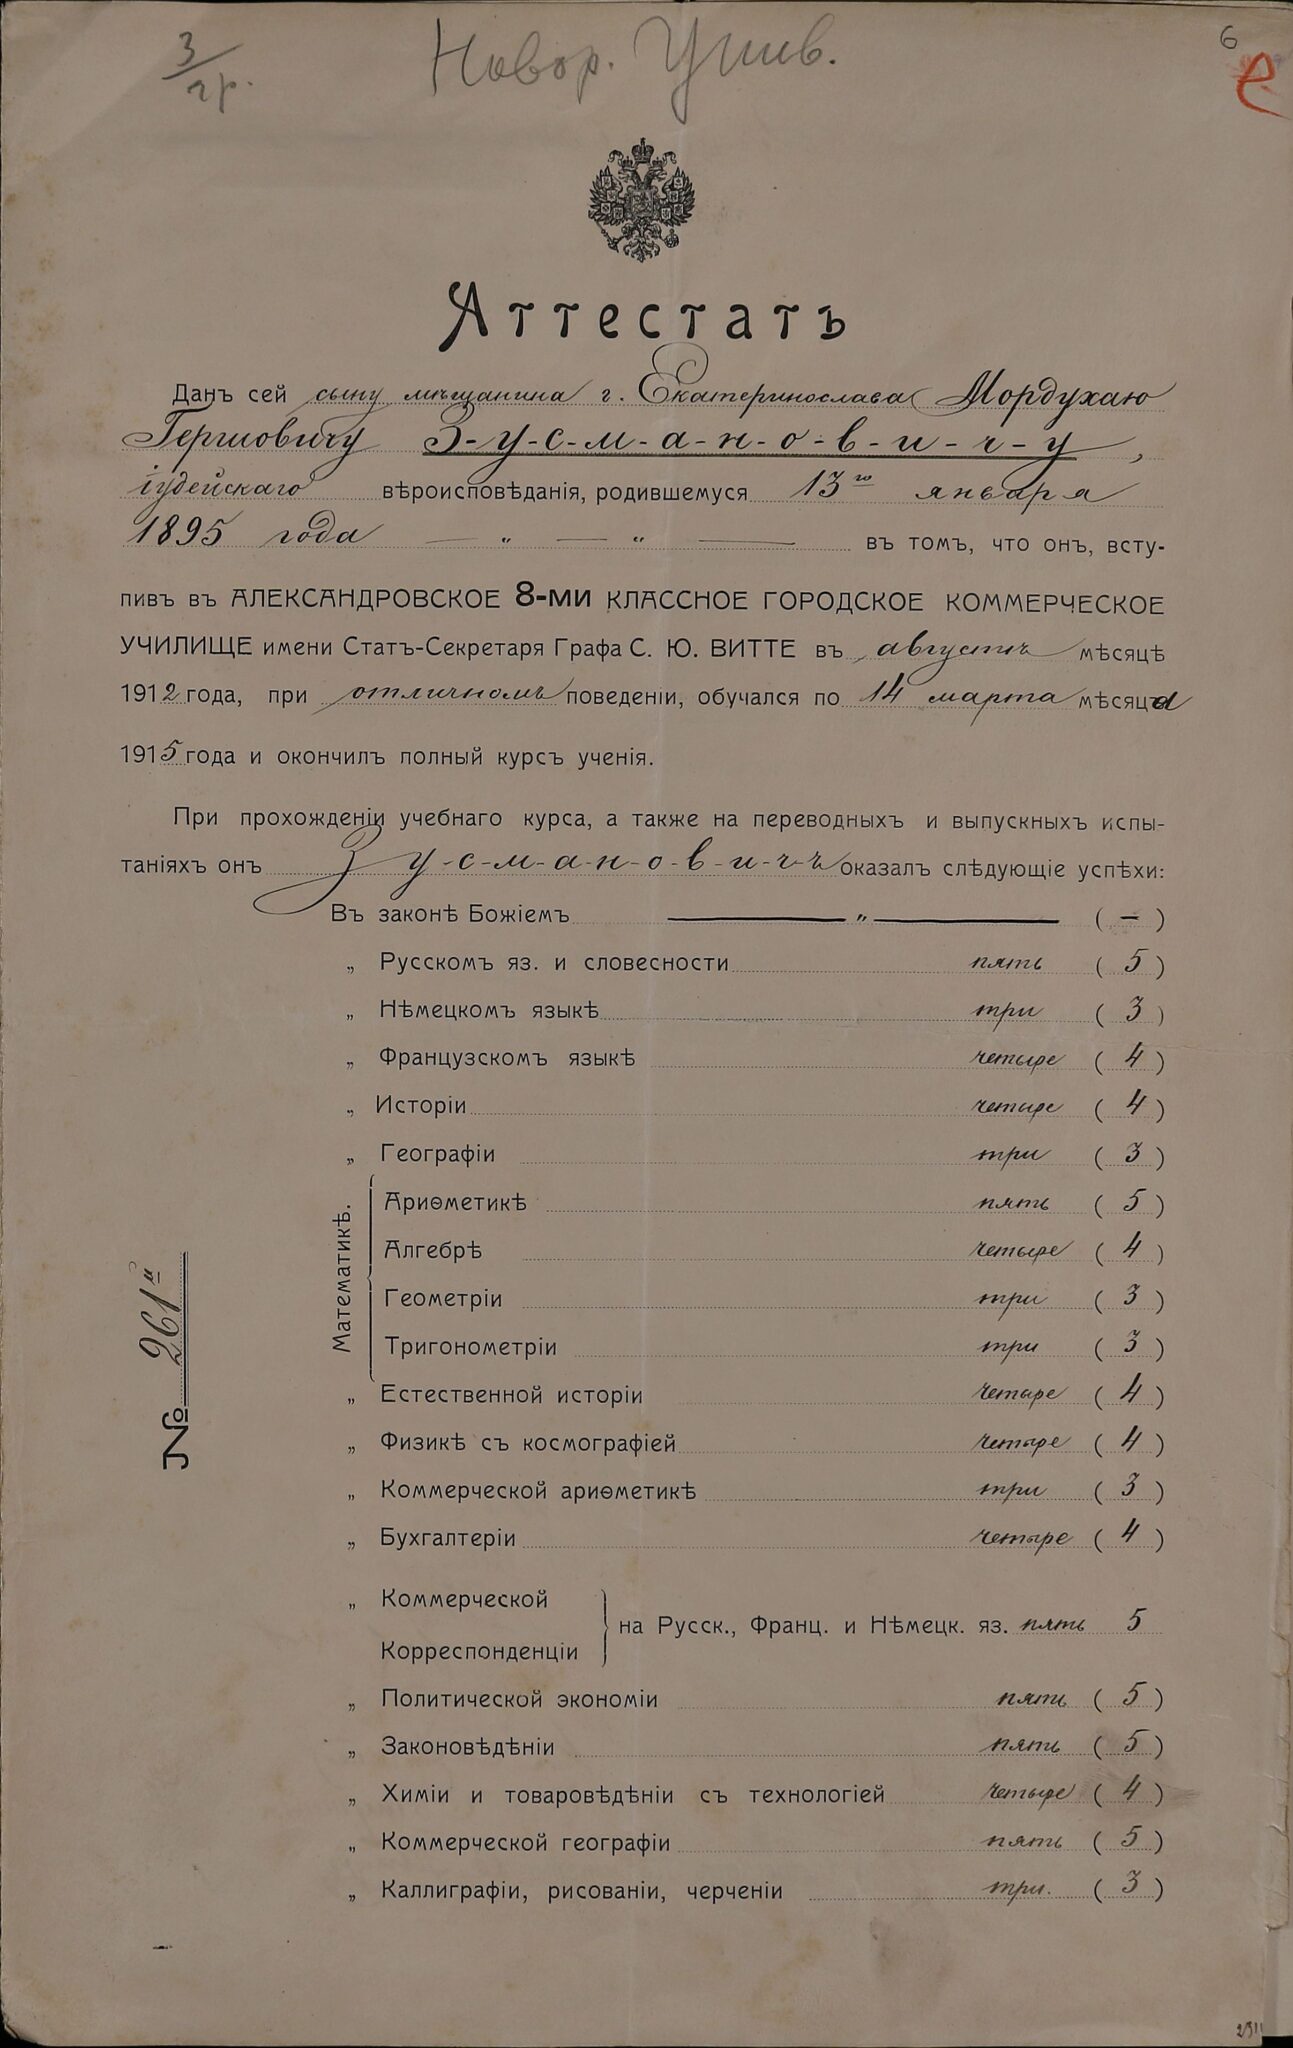 3/гр.
Новор. Унив.
6
е
Аттестатъ
Данъ сей сыну мѣщанина г. Екатеринослава Мордухаю
Гершовичу З-у-с-м-а-н-о-в-и-ч-у,
іудейскаго вѣроисповѣданія, родившемуся 13го января
1895 года — „ — “ — въ томъ, что онъ, всту-
пивъ въ АЛЕКСАНДРОВСКОЕ 8-ми КЛАССНОЕ ГОРОДСКОЕ КОММЕРЧЕСКОЕ
УЧИЛИЩЕ имени Статъ-Секретаря Графа С. Ю. ВИТТЕ въ августѣ мѣсяцѣ
1912 года, при отличномъ поведеніи, обучался по 14 марта мѣсяца
1915 года и окончилъ полный курсъ ученія.
При прохожденіи учебнаго курса, а также на переводныхъ и выпускныхъ испы-
таніяхъ онъ З у-с-м-а-н-о-в-и-ч-ъ оказалъ слѣдующіе успѣхи:
Въ законѣ Божіемъ — „ — ( — )
„ Русскомъ яз. и словесности пять ( 5 )
„ Нѣмецкомъ языкѣ три ( 3 )
„ Французскомъ языкѣ четыре ( 4 )
„ Исторіи четыре ( 4 )
„ Географіи три ( 3 )
Математикѣ.
Ариѳметикѣ пять ( 5 )
Алгебрѣ четыре ( 4 )
Геометріи три ( 3 )
Тригонометріи три ( 3 )
„ Естественной исторіи четыре ( 4 )
„ Физикѣ съ космографіей четыре ( 4 )
„ Коммерческой ариѳметикѣ три ( 3 )
„ Бухгалтеріи четыре ( 4 )
„ Коммерческой
Корреспонденціи
на Русск., Франц. и Нѣмецк. яз. пять 5
„ Политической экономіи пять ( 5 )
„ Законовѣдѣніи пять ( 5 )
„ Химіи и товаровѣдѣніи съ технологіей четыре ( 4 )
„ Коммерческой географіи пять ( 5 )
„ Каллиграфіи, рисованіи, черченіи три. ( 3 )
№ 261й